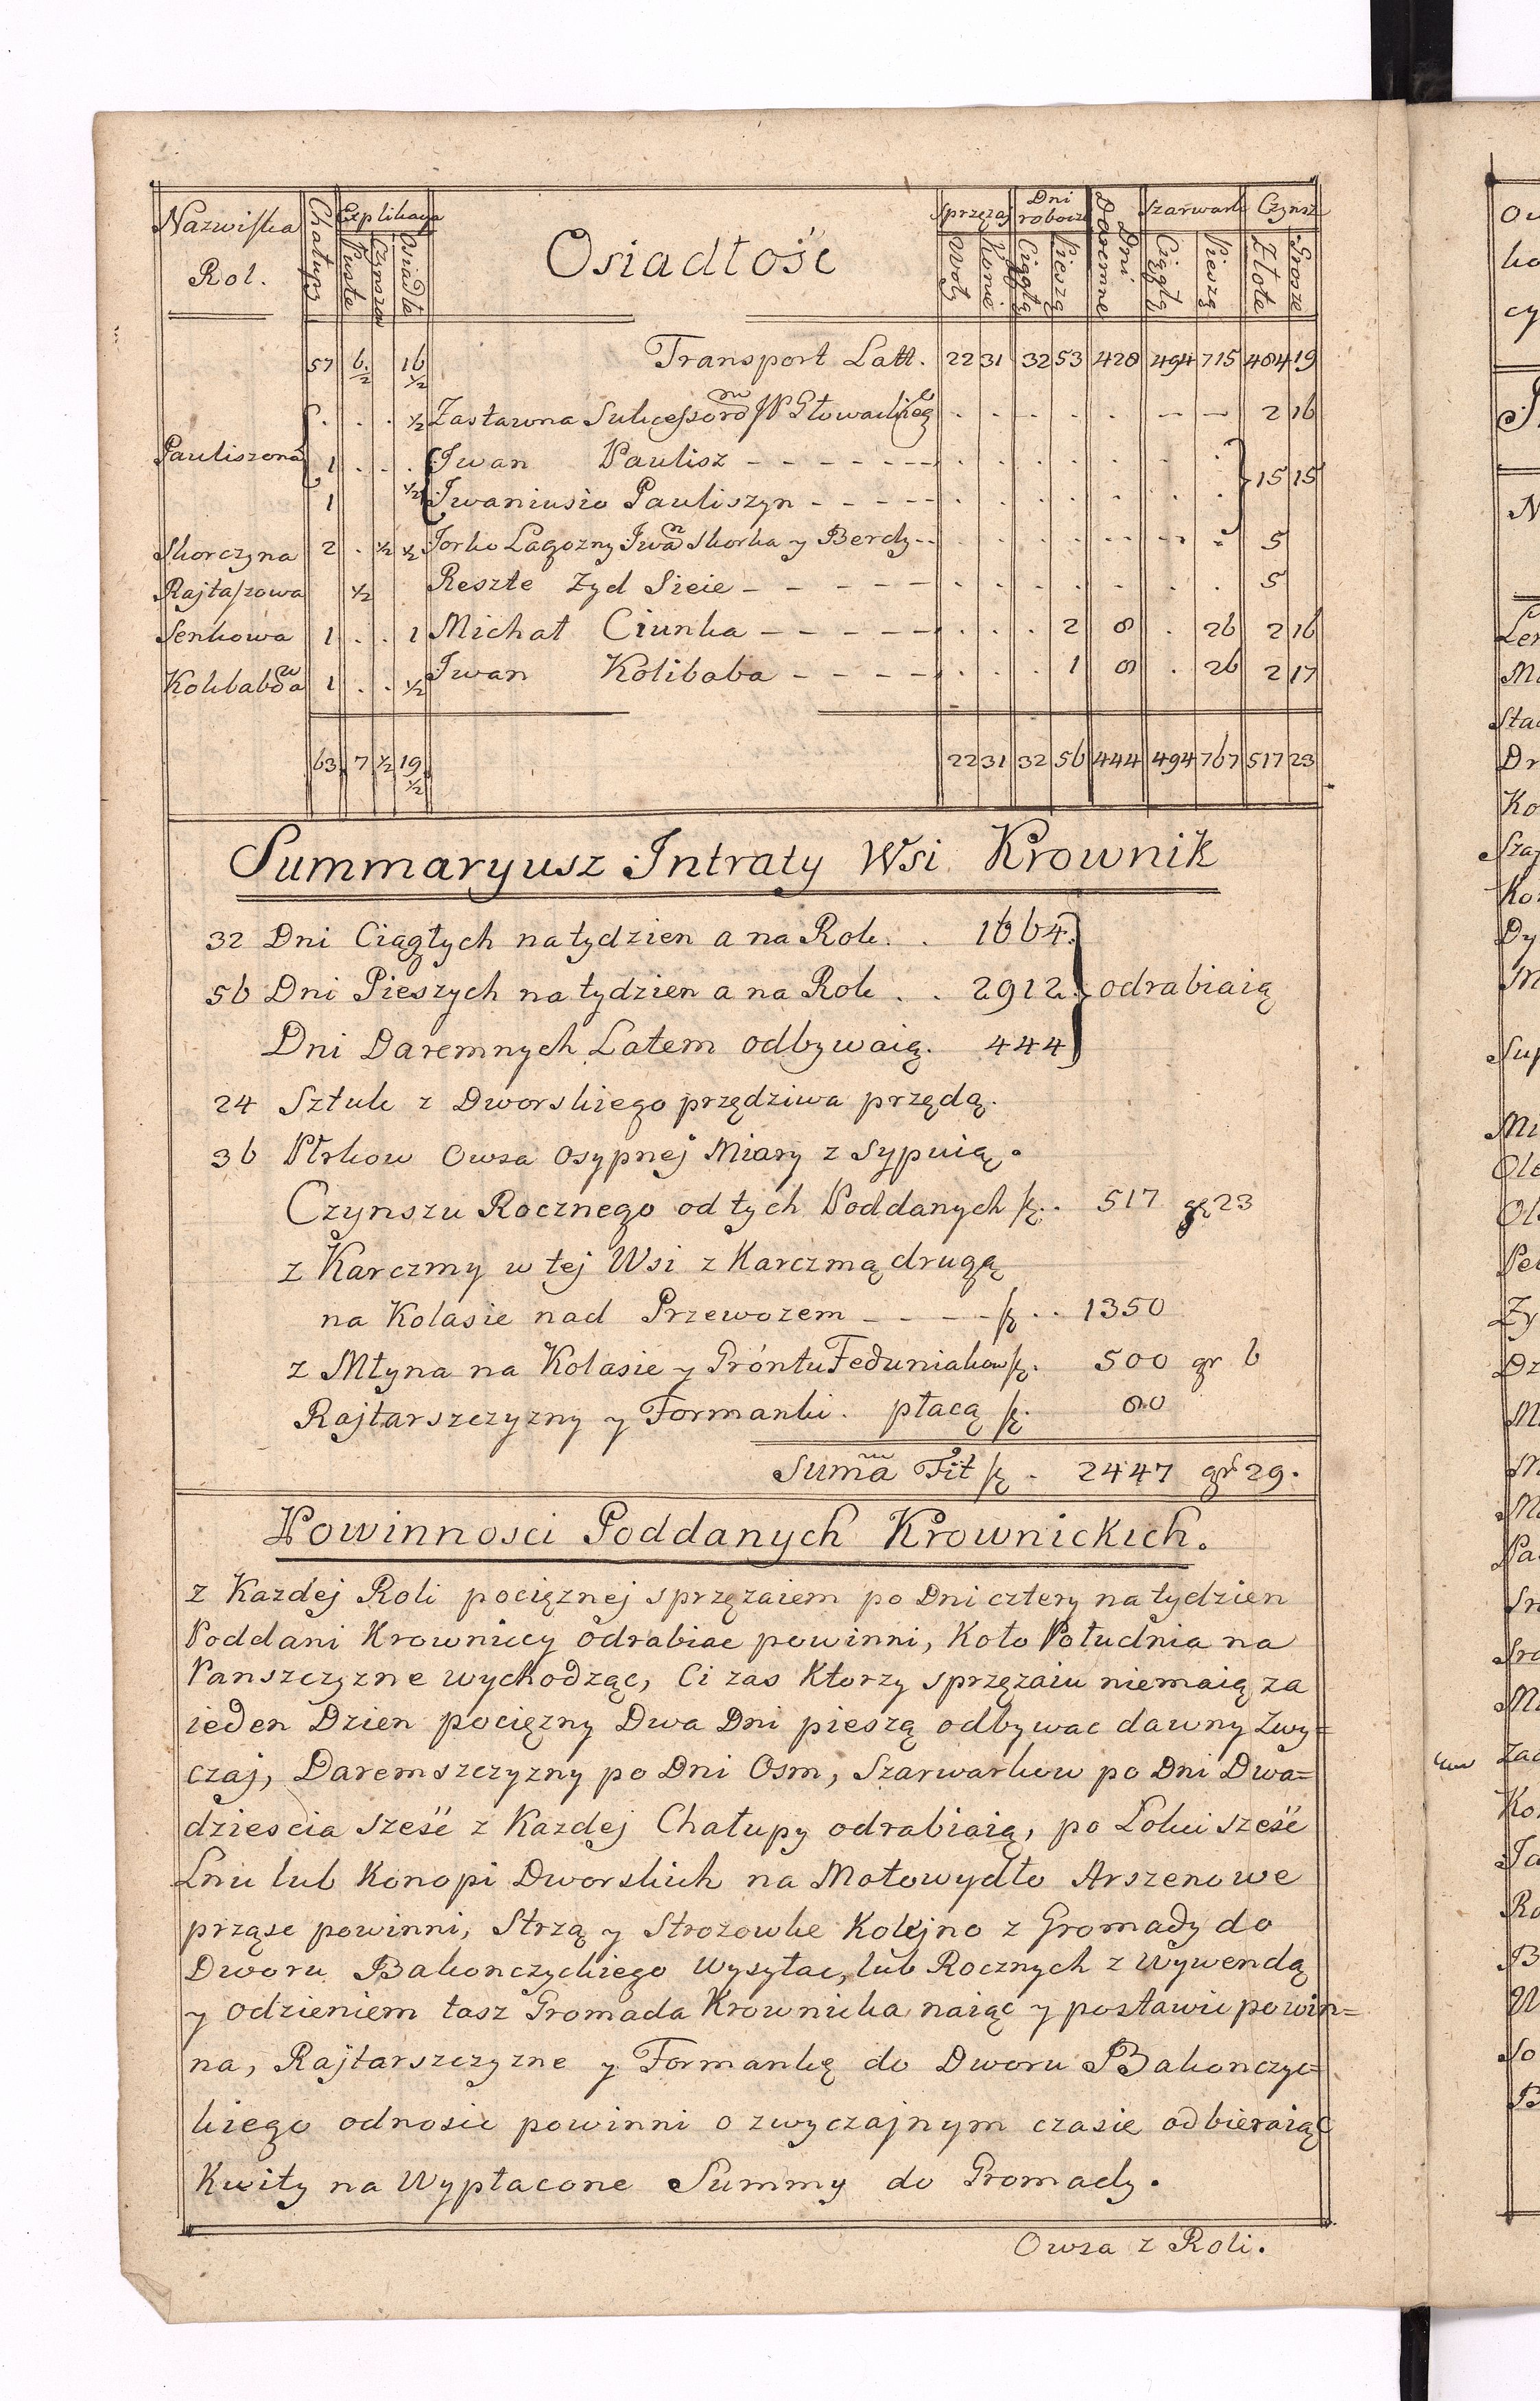 Nazwiska Rol. | Chałupy | Explikacya: Puste, Czynszow, Osiadłe | Osiadłość | Sprzęzaj: Woły, Konie | Dni robocze: Ciągłą, Pieszą | Dni Daremne | Szarwark: Ciągłą, Pieszą | Czynsz: Złote, Grosze
57 6.½ 16½ Transport Latt. 22 31 32 53 428 494 715 484 19
. . . ½ Zastawna Sukcessorow JP Głowackieg . . . . . – – 2 16
Pauliszona 1 . . . Iwan Paulisz – – – – – – . . . . . . . 15 15
1 ½ Iwaniusio Pauliszyn – – – – – . . . . . . .
Skorczyna 2 . ½ ½ Jorko Łagozny Iwan Skorka y Berdy – – . . . . . . . 5
Rajtaszowa ½ Reszte Zyd Sieie – – – – – . . . . . . . 5
Senkowa 1 . . 1 Michał Ciunka – – – – – . . . 2 8 . 26 2 16
Kolibabowa 1 . . ½ Iwan Kolibaba – – – – . . . 1 8 . 26 2 17
63 7 ½ 19½ 22 31 32 56 444 494 767 517 23
Summaryusz Intraty Wsi Krownik
32 Dni Ciągłych na tydzien a na Rok . . 1664.
56 Dni Pieszych na tydzien a na Rok . . 2912. odrabiaią
Dni Daremnych Latem odbywaią. 444
24 Sztuk z Dworskiego przędziwa przędą.
36 Płrkow Owsa osypnej Miary z sypuią.
Czynszu Rocznego od tych Poddanych . . 517 gr 23
z Karczmy w tej Wsi z Karczmą drugą
na Kolasie nad Przewozem – – – – . . 1350
z Młyna na Kolasie y Gróntu Feduniakow . 500 gr 6
Rajtarszczyzny y Formanki. płacą . 80
Suma Fit . 2447 gr 29.
Powinnosci Poddanych Krownickich.
z Kazdej Roli pociężnej sprzęzaiem po Dni cztery na tydzien
Poddani Krowniccy odrabiac powinni, Koło Południa na
Panszczyzne wychodząc, Ci zas Ktorzy sprzęzaiu niemaią za
ieden Dzien pocięzny Dwa Dni pieszą odbywac dawny Zwy=
czaj, Daremszczyzny po Dni Osm, Szarwarkow po Dni Dwa=
dziescia sześć z Kazdej Chałupy odrabiaią, po Łokci sześć
Lnu lub Konopi Dworskich na Motowydło Arszenowe
prząsc powinni, Strzą y Strozowke Kolejno z Gromady do
Dworu Bakonczyckiego wysyłac, lub Rocznych z wywendą
y odzieniem tasz Gromada Krownicka naiąć y postawic powin=
na, Rajtarszczyzne y Formankę do Dworu Bakonczyc=
kiego odnosic powinni o zwyczajnym czasie odbieraiąc
Kwity na Wypłacone Summy do Gromady.
Owsa z Roli.